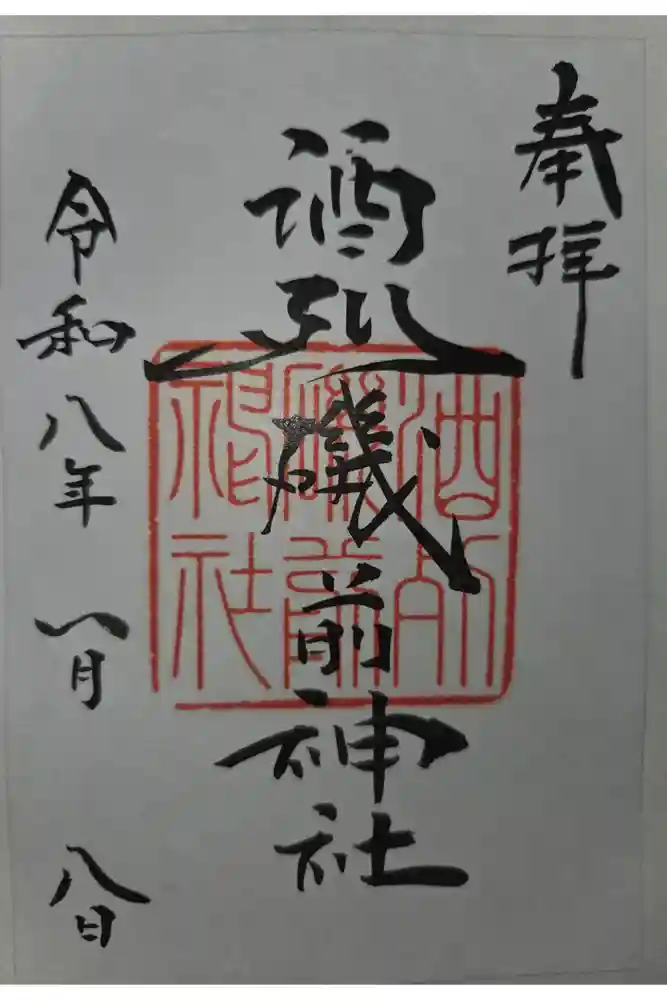 奉拝
酒列磯前神社
酒列
磯前
神社
令和八年 一月 八日